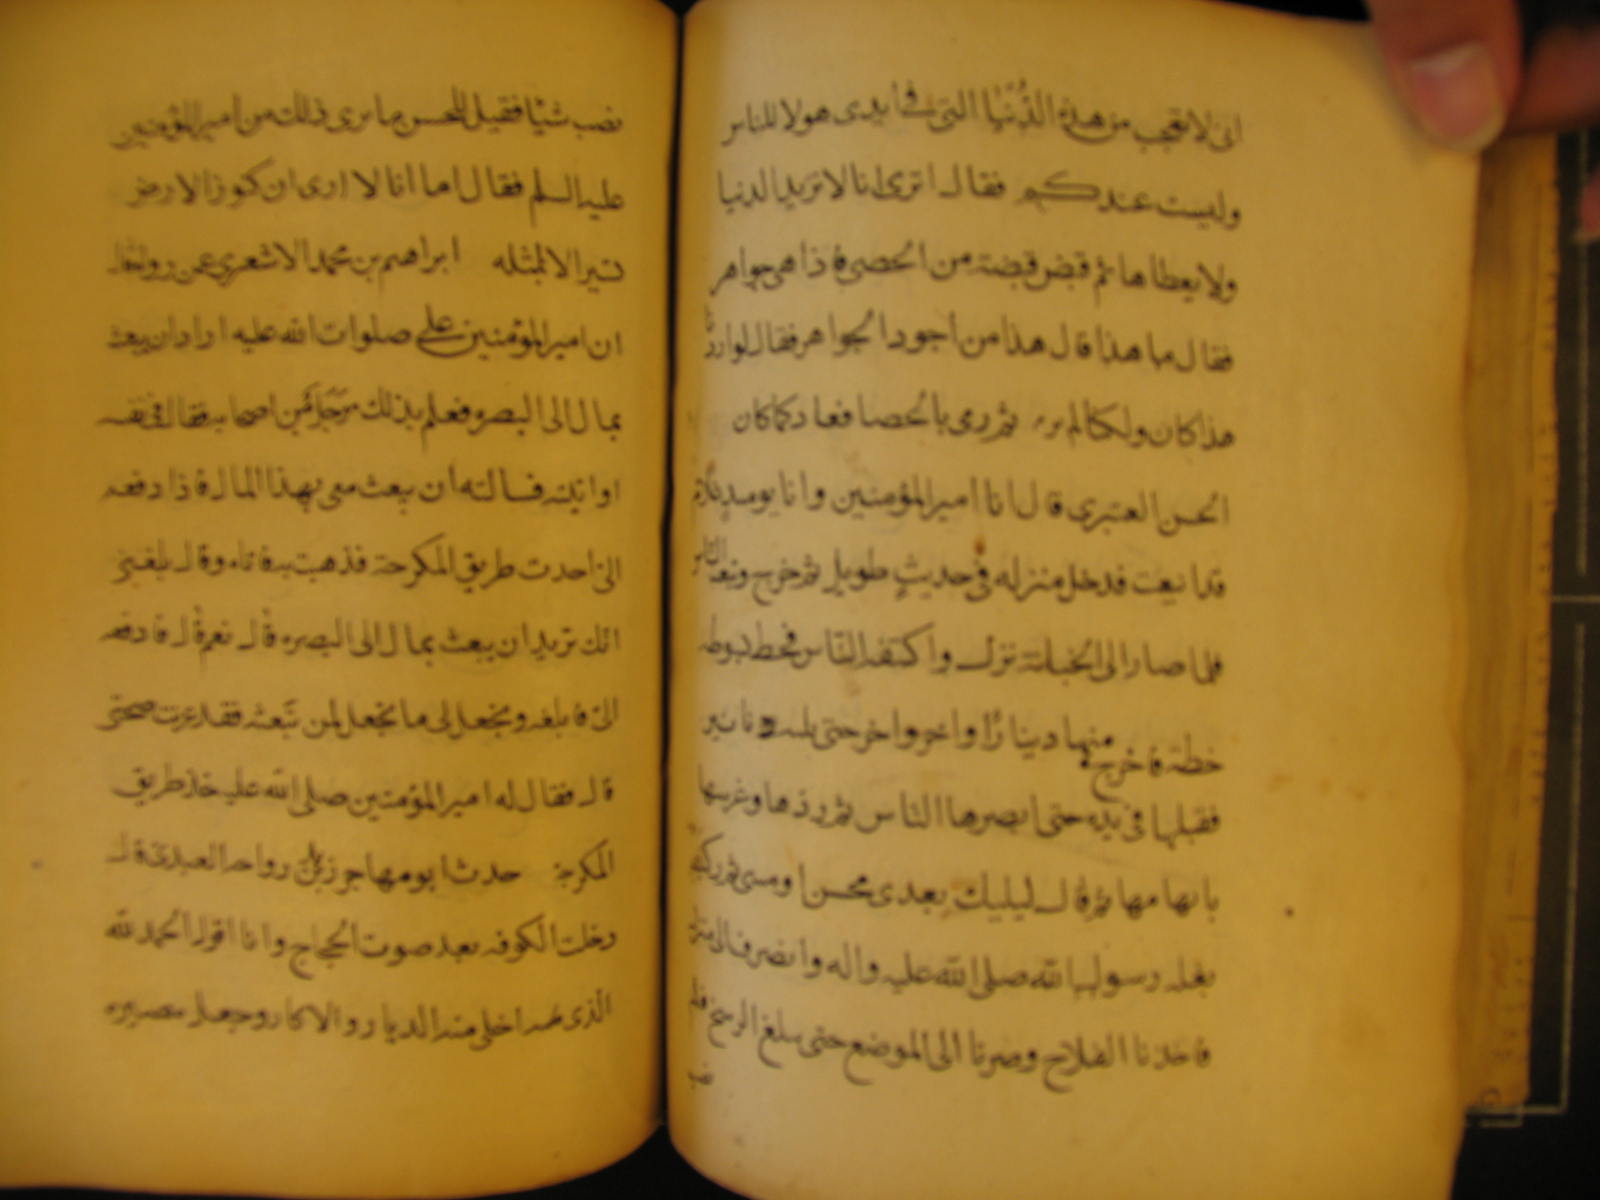 انى لاتعجب من هذه الدُّنيا التى فى ايدى هولا للناس
وليست عندكم فقال اترى انا لا نريد الدنيا
ولا يعطاها ثم قبض قبضة من الحصى فاذا هى جواهر
فقال ما هذا قال هذا من اجود الجواهر فقال لو اردنا
هذا كان ولكنا لم نرده ثم رمى بالحصا فعاد كما كان
الحسن العنبرى قال انا امير المؤمنين وانا يومئذ غلام
قد ايفعت فدخل منزله فى حديث طويل ثم خرج وتبعه الناس
فلما صار الى الجبانة نزل واكتنفه الناس فخط بسوطه
خطة فاخرج منها دينارًا واخر واخر حتى بلـ دنانير
فقلبها فى يده حتى ابصرها الناس ثم ردها وغرسها
بابهامها ثم قال ليليك بعدى محسن او مسى ثم ركب
بغلة رسول الله صلى الله عليه واله وانصرف الى منزله
فاخذنا الفلاح وصرنا الى الموضع حتى بلغ الرسخ فلم
نصب
نصب شيًا فقيل للحسن ما ترى ذلك من امير المؤمنين
عليه السلم فقال اما انا لا ارى ان كنوز الارض
تسير الا لمثله ابراهيم بن محمد الاشعرى عمن رواه قال
ان امير المؤمنين على صلوات الله عليه اراد ان يبعث
بمال الى البصرة فعلم بذلك رجل من اصحابه فقال فى نفسه
لو اتيته فسالته ان يبعث معى بهذا المال فاذا دفعه
الى اخذت طريق المكرحة فذهبت به فاتاه وقال بلغنى
انك تريد ان يبعث بمال الى البصرة قال نعم قال فادفعه
الى فابلغه وتجعل لى ما تجعل لمن تبعثه فقد عرفت صحبتى
قال فقال له امير المؤمنين صلى الله عليه خذ طريق
المكرحة حدثنا ابو مهاجر رواحه العبدى قال
دخلت الكوفه بعد موت الحجاج وانا اقول الحمد لله
الذى اخلى منه الديار والاثار وجعل مصيره